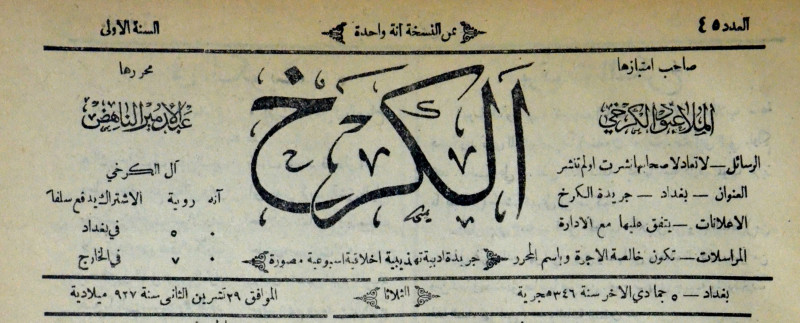 العدد ٤٥
ثمن النسخة آنة واحدة
السنة الاولى
صاحب امتيازها
الملا عبود الكرخي
الكرخ
محررها
عبد الامير الناهض
آل الكرخي
الرسائل — لا تعاد لاصحابها نشرت او لم تنشر
العنوان — بغداد — جريدة الكرخ
الاعلانات — يتفق عليها مع الادارة
المراسلات — تكون خالصة الاجرة وباسم المحرر
جريدة ادبية تهذيبية اخلاقية اسبوعية مصورة
آنه روبية الاشتراك يدفع سلفا
٠ ٥ في بغداد
٠ ٧ في الخارج
بغداد — ٥ جمادي الاخر سنة ٣٤٦ هجرية
الثلاثا
الموافق ٢٩ تشرين الثاني سنة ٩٢٧ ميلادية